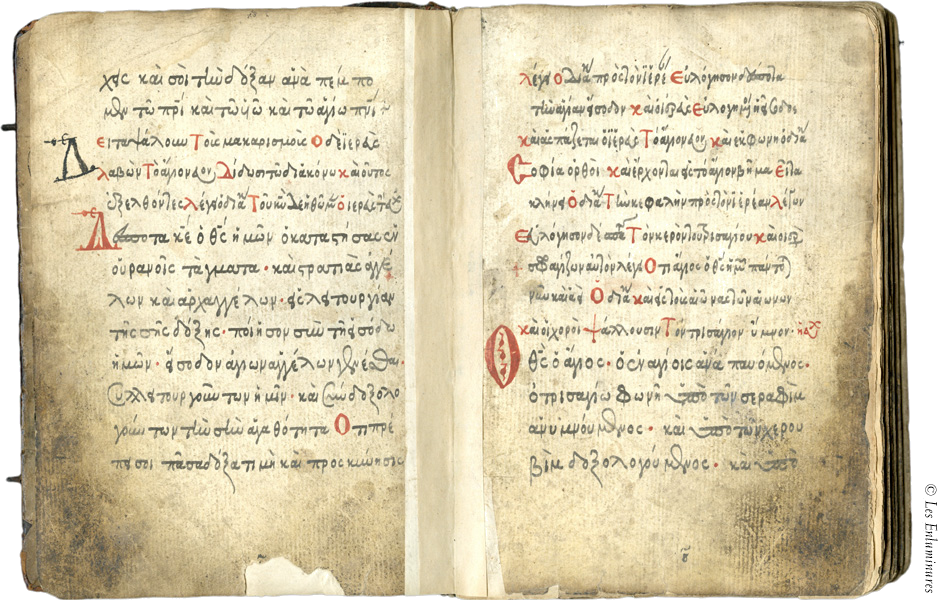 χῆς καὶ σοὶ τὴν δόξαν ἀναπέμπο
μεν τῷ πρὶ καὶ τῷ υἱῷ κὰι τῷ ἁγίω πνι
Εἶτα ψάλουν Τοὺς μακαρισμοὺς Ο δὲ ἱερεὺς
λαβὼν Τὸ ἅγιον Δίδωσι τῶ διακόνω κ οὕτος
ἐξελθόντες λέγει ὁ διά Τοῦ κυ δεηθῶμεν ὁ ἱερεὺς
Δέσποτα κε ὁ θς ἡμῶν ὁ καταστήσας ἐν
οὐρανοῖς τάγματα · καὶ στρατιὰς ἀγγέ
λων καὶ ἀρχαγγέλων · εἰς λειτουργίαν
τῆς σῆς δόξης · ποίησον σὺν τῇ εἰσόδω
ἡμῶν · εἴσοδον ἁγίων ἀγγέλων γενέσθαι ·
συλλειτουργούντων ἡμῖν · καὶ συνδοξολο
γούντων τὴν σὴν ἀγαθότητα Ὅτι πρέ
πει σοι πᾶσα δόξα τιμὴ καὶ προσκύνησις
λέγει Ὁ διά πρὸς τὸν ἱερέ Εὐλόγησον δέσποτα
τὴν ἁγίαν εἴσοδον καὶ ὁ ἱερεὺς Εὐλογημένη ἡ εἴσοδος
καὶ ἀσπάζεται ὁ ἱερεὺς Τὸ ἅγιον καὶ ἐκφωνῆ ὁ διά
Σοφία ὀρθοί καὶ ἔρχονται εἰς τὸ ἅγιον βῆμα Εἶτα
κλήνει Ὁ διά Τὴν κεφαλὴν πρὸς τὸν ἱερέαν λέγων
Εὐλόγησον δέσποτα Τὸν κερὸν τοῦ τρισαγίου καὶ ὁ ἱερεὺς
σφαγίζων αὐτὸν λέγει Ὅτι ἅγιος ὁ θς ἡμῶν πάντοτε
νῦν καὶ ἀεὶ Ὁ διά καὶ εἰς τοὺς αἰῶνας τῶν αἰώνων
καὶ οἱ χοροὶ ψάλλουσιν Τὸν τρισάγιον ὕμνον ·
Ὁ θς ὁ ἅγιος · ὁ ἐν ἁγίοις ἀναπαυόμενος ·
ὁ τρισαγίω φωνῇ ὑπὸ τῶν σεραφὶμ
ἀνυμνούμενος · καὶ ὑπὸ τῶν χερου
βὶμ δοξολογούμενος · καὶ ὑπὸ
© Les Enluminures